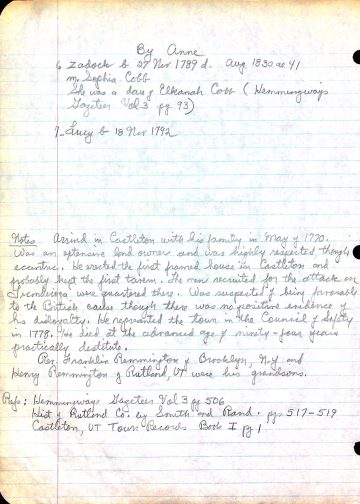 By Anne
6 Zadock b 27 Nov 1789 d. Aug 1830 ae 41
m. Sophia Cobb
She was a dau of Elkanah Cobb (Hemmingways
Gazeteer Vol 3 pg 93)
7- Lucy b 18 Nov 1792
Notes Arrived in Castleton with his family in May of 1770.
Was an extensive land owner and was highly respected though
eccentric. He erected the first framed house in Castleton and
probably kept the first tavern. The men recruited for the attack on
Ticonderoga were quartered there. Was suspected of being favorable
to the British cause though there was no positive evidence of
his disloyalty. He represented the town in the Council of Safety
in 1778. He died at the advanced age of ninety-four years
practically destitute.
Rev. Franklin Remmington of Brooklyn, N.Y. and
Henry Remmington of Rutland, VT were his grandsons.
Refs: Hemmingways Gazeteer Vol 3 pg 506
Hist of Rutland Co. by Smith and Rand. pgs 517-519
Castleton, VT Town Records Book I pg 1